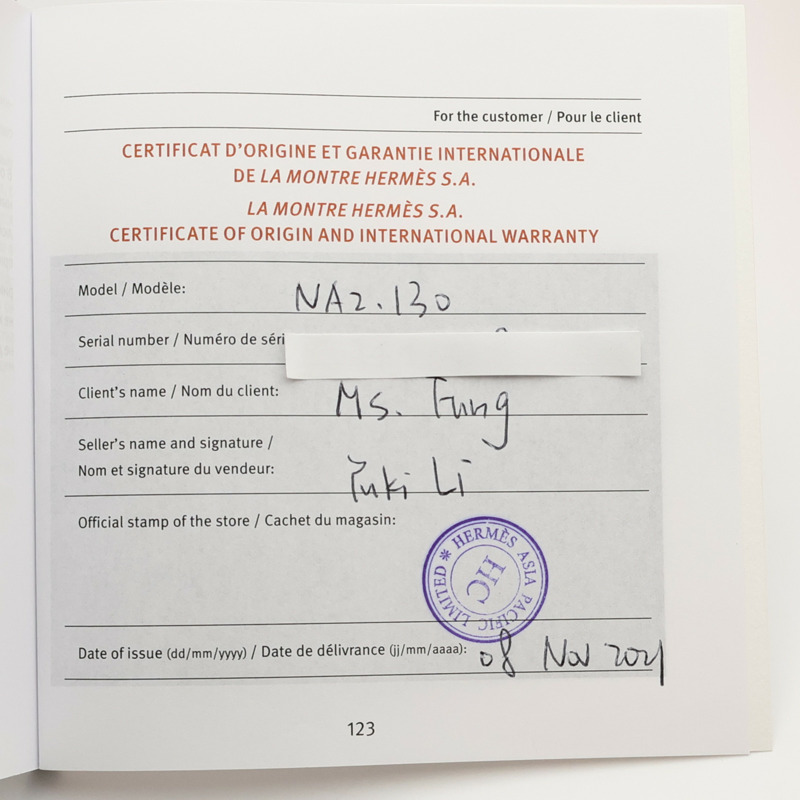 For the customer / Pour le client
CERTIFICAT D'ORIGINE ET GARANTIE INTERNATIONALE
DE LA MONTRE HERMÈS S.A.
LA MONTRE HERMÈS S.A.
CERTIFICATE OF ORIGIN AND INTERNATIONAL WARRANTY
Model / Modèle: NA2.130
Serial number / Numéro de séri
Client's name / Nom du client: Ms. Fung
Seller's name and signature /
Nom et signature du vendeur: Yuki Li
Official stamp of the store / Cachet du magasin:
HERMÈS ASIA PACIFIC LIMITED
HC
Date of issue (dd/mm/yyyy) / Date de délivrance (jj/mm/aaaa): 08 Nov 2021
123